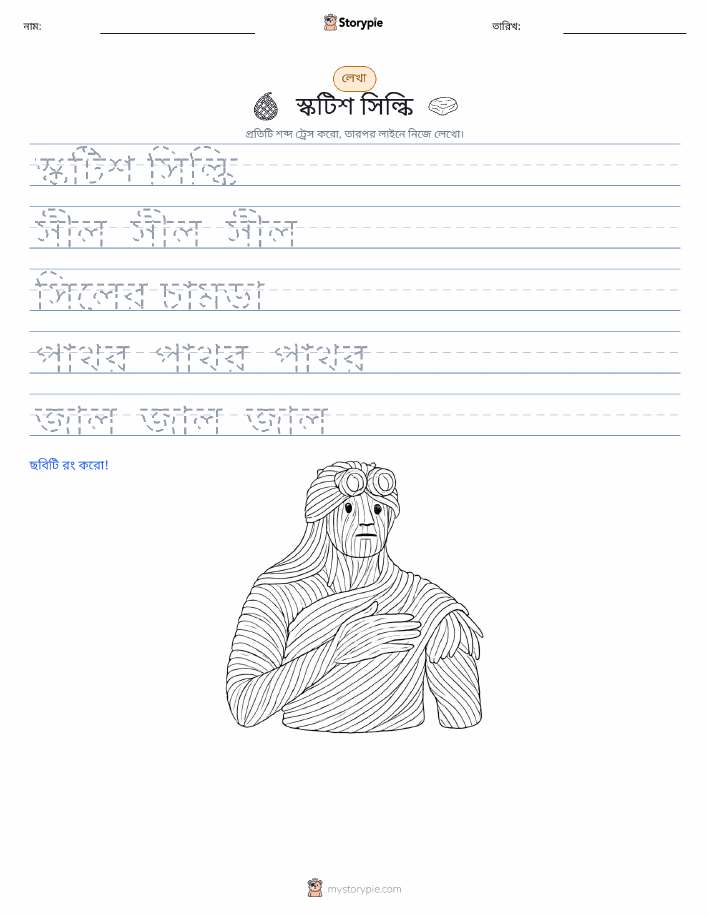 নাম:
Storypie
তারিখ:
লেখা
স্কটিশ সিল্কি
প্রতিটি শব্দ ট্রেস করো, তারপর লাইনে নিজে লেখো।
স্কটিশ সিল্কি
সীল সীল সীল
সিলের চামড়া
পাথর পাথর পাথর
জাল জাল জাল
ছবিটি রং করো!
mystorypie.com